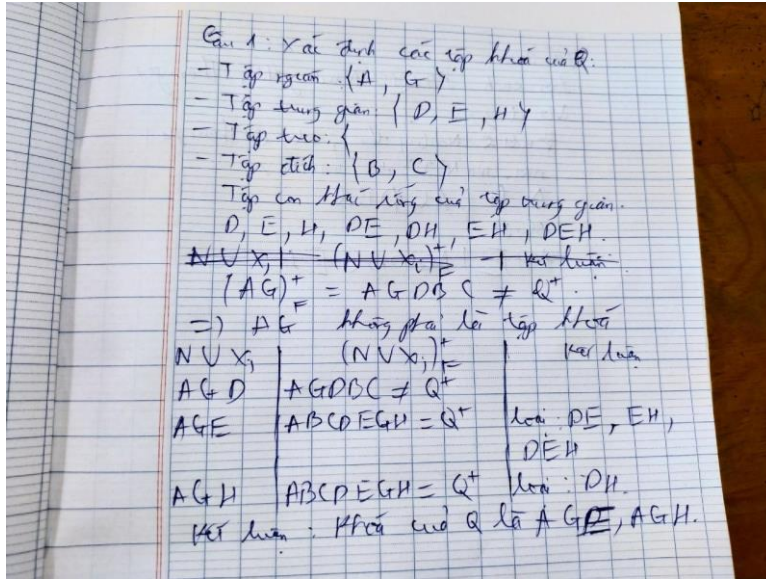 Câu 1: Xác định các tập khoá của Q:
- Tập nguồn: {A, G}
- Tập trung gian: {D, E, H}
- Tập treo: {
- Tập đích: {B, C}
Tập con khác rỗng của tập trung gian.
D, E, H, DE, DH, EH, DEH.
N U Xi | (N U Xi)+F | Kết luận
(AG)+F = AGDBC ≠ Q+.
=> AG không phải là tập khoá
N U Xi | (N U Xi)+F | Kết luận
AGD | AGDBC ≠ Q+
AGE | ABCDEGH = Q+ | loại: DE, EH,
DEH
AGH | ABCDEGH = Q+ | loại: DH.
Kết luận: Khoá của Q là AGE, AGH.